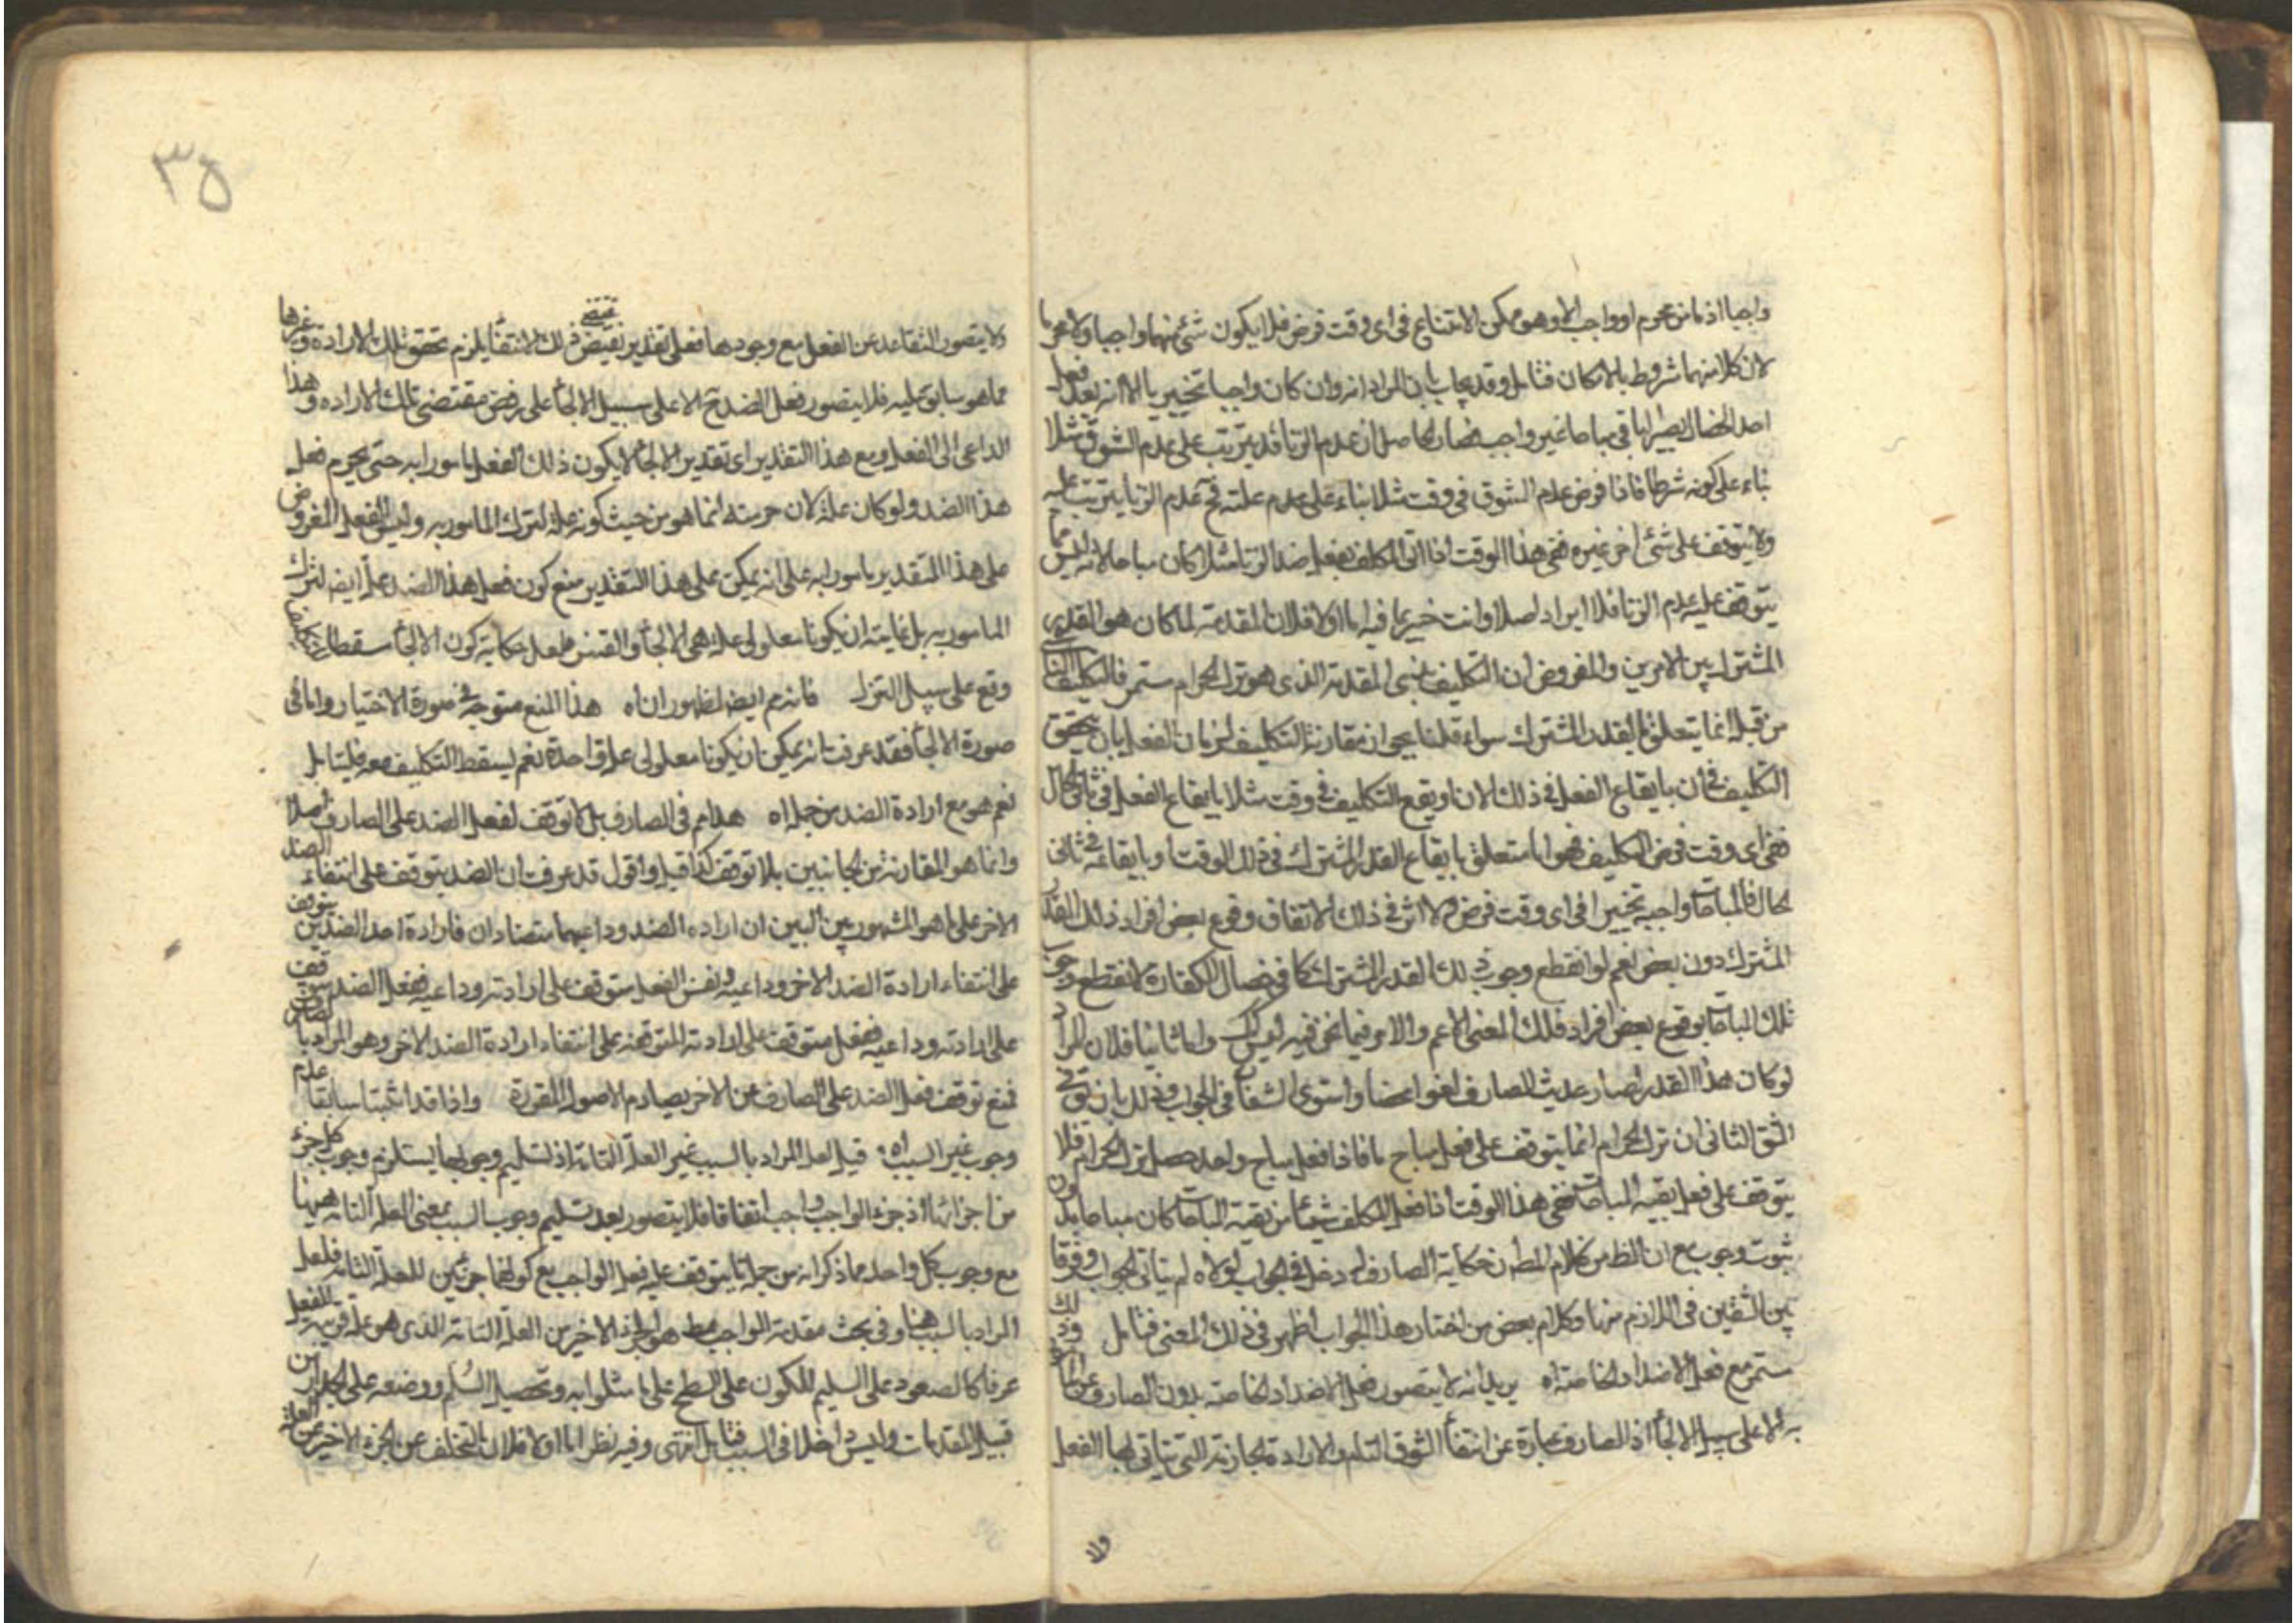 واجبا اذ ما من محرم او واجب الا وهو ممكن الامتناع فى اى وقت فرض فلا يكون شئ منهما واجبا ولا محرما
لان كلا منهما مشروط بالامكان فتامل وقد يجاب بان المراد انه وان كان واجبا تخييريا الا انه بعد فعل
احد الخصال يصير الباقى مباحا غير واجب فصار الحاصل ان عدم الزنا قد يترتب على عدم الشوق مثلا
بناء على كونه شرطا فاذا فرض عدم الشوق فى وقت مثلا بناء على عدم علته فح عدم الزنا يترتب عليه
ولا يتوقف على شئ اخر غيره ففى هذا الوقت اذا اتى المكلف بفعل ضد الزنا مثلا كان مباحا لانه ليس مما
يتوقف عليه عدم الزنا فلا ايراد اصلا وانت خبير بما فيه اما اولا فلان المقدمة لما كان هو القدر
المشترك بين الامرين والمفروض ان التكليف بذى المقدمة الذى هو ترك الحرام مستمر فالتكليف الناشى
من قبله انما يتعلق بالقدر المشترك سواء قلنا بجواز مقارنة التكليف لزمان الفعل بان يتحقق
التكليف فى آن بايقاع الفعل فى ذلك الان او يقع التكليف فى وقت مثلا بايقاع الفعل فى ثانى الحال
ففى اى وقت فرض التكليف فهو اما متعلق بايقاع القدر المشترك فى ذلك الوقت او بايقاعه فى ثانى
الحال فالمباحات واجبة تخييرا فى اى وقت فرض ولا اثر فى ذلك لاتفاق وقوع بعض افراد ذلك القدر
المشترك دون بعض نعم لو انقطع وجوب ذلك القدر المشترك كما فى خصال الكفارة لانقطع وجوب
تلك المباحات بوقوع بعض افراد ذلك المعنى الاعم والامر فيما نحن فيه ليس كك واما ثانيا فلان المراد
لو كان هذا القدر لصار حديث الصارف لغوا محضا واستوى الشقان فى الجواب وذلك بان يق فى
الشق الثانى ان ترك الحرام انما يتوقف على فعل مباح ما فاذا فعل مباح واحد حصل ترك الحرام فلا
يتوقف على فعل بقية المباحات ففى هذا الوقت اذا فعل المكلف شيئا من بقية المباحات كان مباحا بدون
ثبوت وجوب مع ان الظ من كلام المص ان حكاية الصارف له دخل فى الجواب لولاه لم يتاتى الجواب وفرقا
بين الشقين فى اللازم منها وكلام بعض من اختار هذا الجواب اظهر فى ذلك المعنى فتامل
مستمر مع فعل الاضداد الخاصة اه يريد انه لا يتصور فعل الاضداد الخاصة بدون الصارف عن المأمور
به الا على سبيل الالجأ اذ الصارف عبارة عن انتفأ الشوق التام والارادة الجازمة التى يتاتى بها الفعل
ولا
٣٥
ولا يتصور التقاعد عن الفعل مع وجودها فعلى تقدير نقيض ذلك الانتفأ يلزم تحقق تلك الارادة وغيرها
مما هو سابق عليه فلا يتصور فعل الضد ح الا على سبيل الالجأ على رفض مقتضى تلك الارادة وهذا
الداعى الى الفعل ومع هذا التقدير اى تقدير الالجأ لا يكون ذلك الفعل مامورا به حتى يحرم فعل
هذا الضد ولو كان علة لان حرمته انما هو من حيث كونه علة لترك المامور به وليس الفعل المفروض
على هذا التقدير مامورا به على انه يمكن على هذا التقدير منع كون فعل هذا الضد علة ايضا لترك
المامور به بل غايته ان يكونا معلولى علة هى الالجأ والقسر فلعل حكاية كون الالجأ مسقطا للتكليف
وقع على سبيل التنزل فانه م ايضا لظهور ان اه هذا المنع متوجه فى صورة الاختيار واما فى
صورة الالجأ فقد عرفت انه يمكن ان يكونا معلولى علة واحدة نعم يسقط التكليف معه فليتامل
نعم هو مع ارادة الضد من جملة اه هذا م فى الصارف بل لا توقف لفعل الضد على الصارف اصلا
وانما هو المقارنة من الجانبين بلا توقف كذا قيل واقول قد عرفت ان الضد يتوقف على انتفاء الضد
الاخر على ما هو المشهور بين البين ان ارادة الضد وداعيهما متضادان فارادة احد الضدين يتوقف
على انتفاء ارادة الضد الاخر وداعيه ونفس الفعل متوقف على ارادته وداعيه ففعل الضد يتوقف
على ارادته وداعيه ففعل متوقف على ارادته المتوقفة على انتفاء ارادة الضد الاخر وهو المراد بالصارف
فمنع توقف فعل الضد على الصارف عن الاخر يصادم الاصول المقررة واذا قد اثبتنا سابقا عدم
وجوب غير السبب اه قيل لعل المراد بالسبب غير العلة التامة اذ تسليم وجوبها يستلزم وجوب كل جزء
من اجزائها اذ جزء الواجب واجب اتفاقا فلا يتصور بعد تسليم وجوب السبب بمعنى العلة التامة ههنا
مع وجوب كل واحد مما ذكر انه من جملة ما يتوقف عليه فعل الواجب مع كونهما جزئين للعلة التامة فلعل
المراد بالسبب ههنا وفى بحث مقدمة الواجب مط هو الجزء الاخير من العلة التامة الذى هو علة قريبة للفعل
عرفا كالصعود على السليم للكون على السطح على ما مثلوا به وتحصيل السلم ووضعه على الجدار من
قبيل المقدمات وليس داخلا فى السبب فتامل انتهى وفيه نظر اما اولا فلان التخلف عن الجزء الاخير من العلة